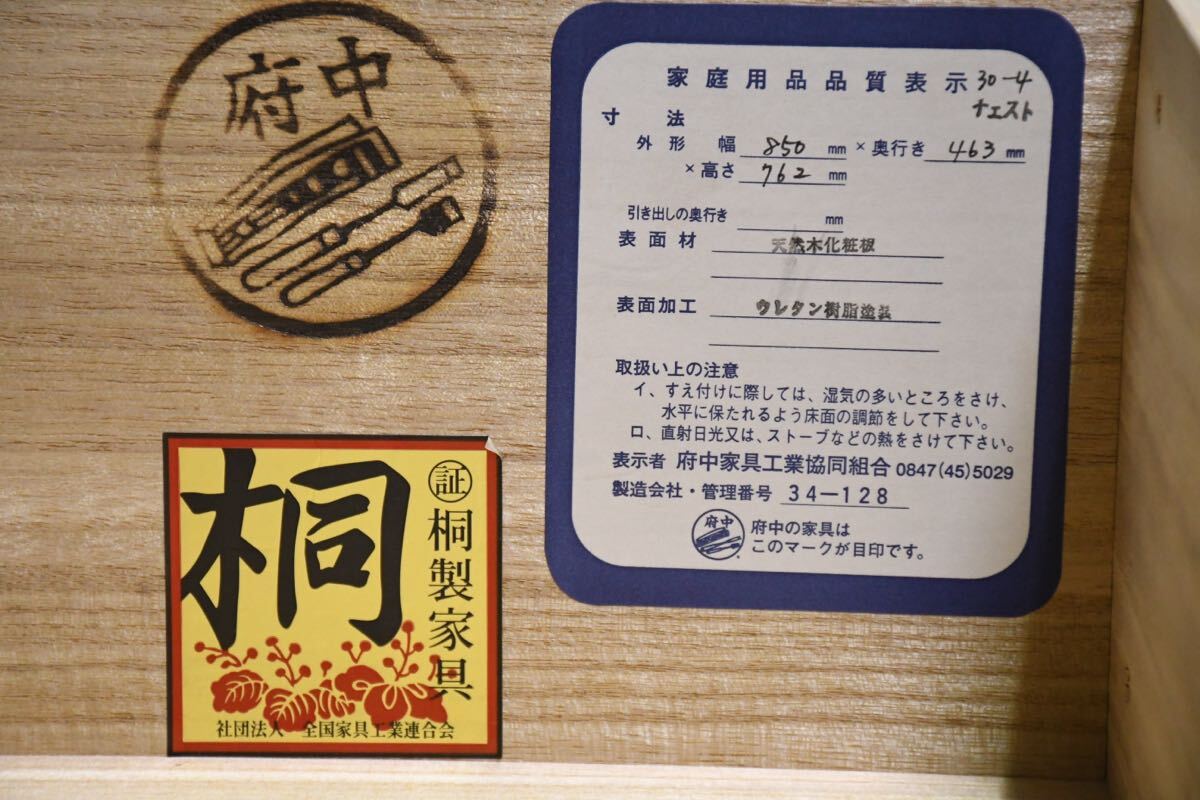 府中
家庭用品品質表示 30-4
チェスト
寸法
外形 幅 850 mm ×奥行き 463 mm
×高さ 762 mm
引き出しの奥行き mm
表面材 天然木化粧板
表面加工 ウレタン樹脂塗装
取扱い上の注意
イ、すえ付けに際しては、湿気の多いところをさけ、
水平に保たれるよう床面の調節をして下さい。
ロ、直射日光又は、ストーブなどの熱をさけて下さい。
表示者 府中家具工業協同組合 0847(45)5029
製造会社・管理番号 34-128
府中
府中の家具は
このマークが目印です。
桐
証
桐製家具
社団法人 全国家具工業連合会